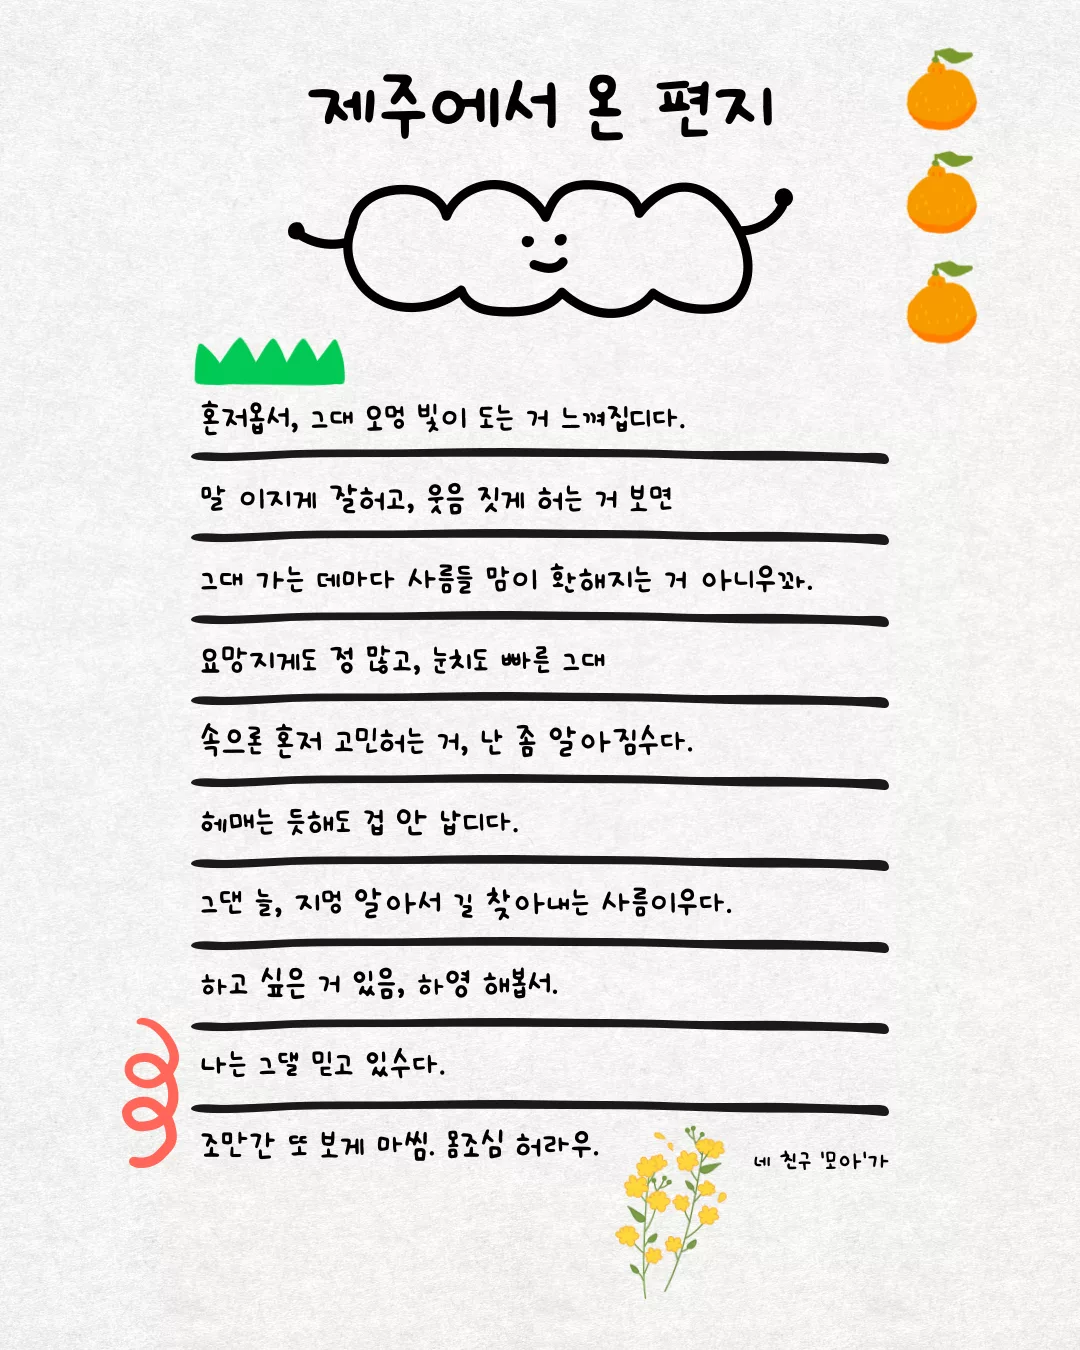 제주에서 온 편지
혼저옵서, 그대 오멍 빛이 도는 거 느껴집디다.
말 이지게 잘허고, 웃음 짓게 허는 거 보면
그대 가는 데마다 사름들 맘이 환해지는 거 아니우꽈.
요망지게도 정 많고, 눈치도 빠른 그대
속으론 혼저 고민허는 거, 난 좀 알아짐수다.
헤매는 듯해도 겁 안 납디다.
그댄 늘, 지멍 알아서 길 찾아내는 사름이우다.
하고 싶은 거 있음, 하영 해봅서.
나는 그댈 믿고 있수다.
조만간 또 보게 마씸. 몸조심 허라우.
네 친구 '모아'가